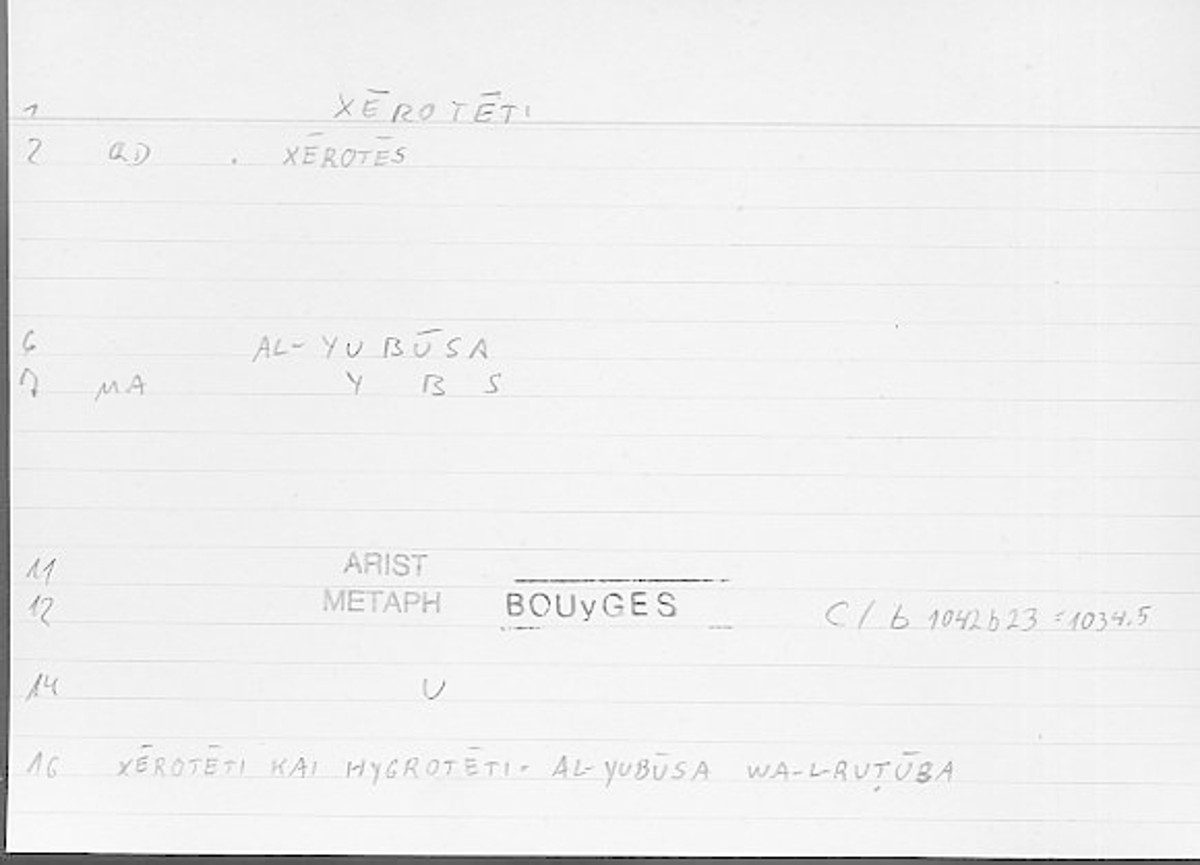 1 XĒROTĒTI
2 QD . XĒROTĒS
6 AL-YUBŪSA
7 MA Y B S
11 ARIST
12 METAPH BOUyGES C / b 1042b23 = 1034.5
14 U
16 XĒROTĒTI KAI HYGROTĒTI - AL-YUBŪSA WA-L-RUṬŪBA